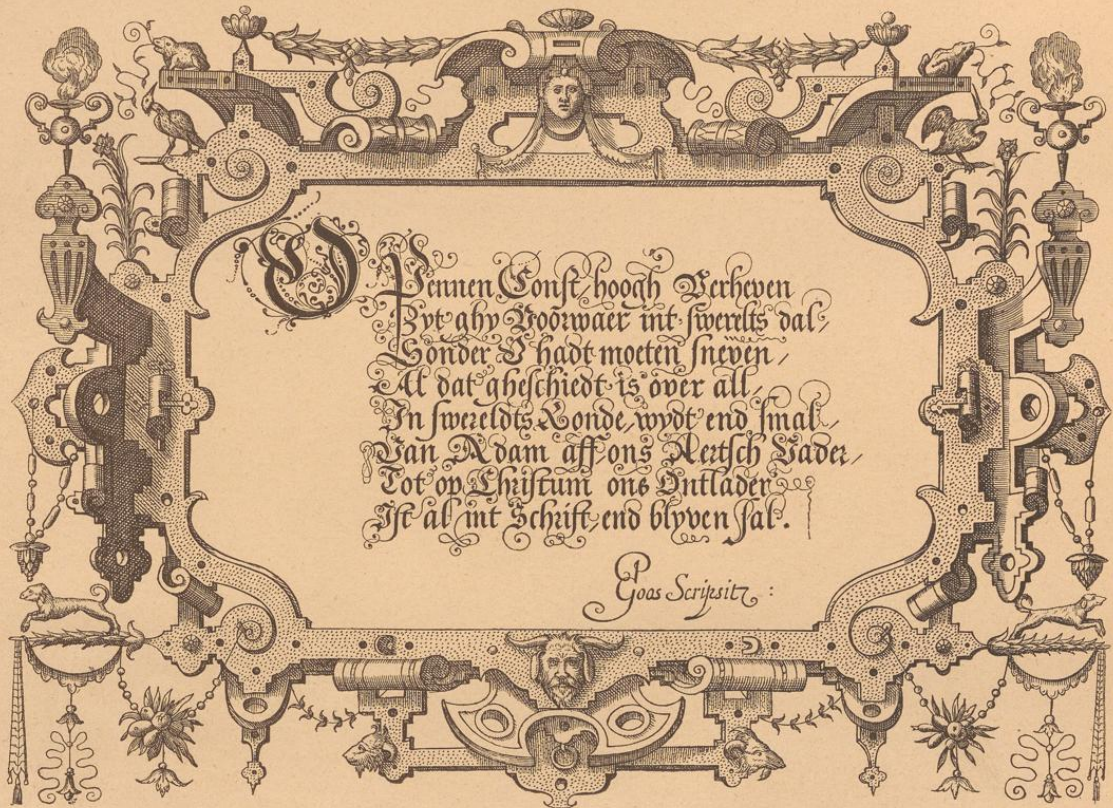 O Pennen Const, hoogh Verheven
Zyt ghy Voorwaer int swerelts dal,
Sonder V hadt moeten sneven,
Al dat gheschiedt is over all,
In swereldts Ronde, wydt end smal,
Van Adam aff ons Aertsch Vader,
Tot op Christum ons Ontlader
Ist al int Schrift, end blyven sal.
Goos Scripsit: